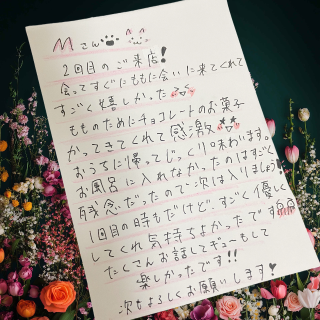 Mさん
2回目のご来店!
会ってすぐにももに会いに来てくれて
すごく嬉しかった
もものためにチョコレートのお菓子
かってきてくれて感激
おうちに帰ってじっくり味わいます。
お風呂に入れなかったのはすごく
残念だったので次は入りましょう!
1回目の時もだけど、すごく優しく
してくれ気持ちよかったです
たくさんお話してギューもして
楽しかったです!!
次もよろしくお願いします!